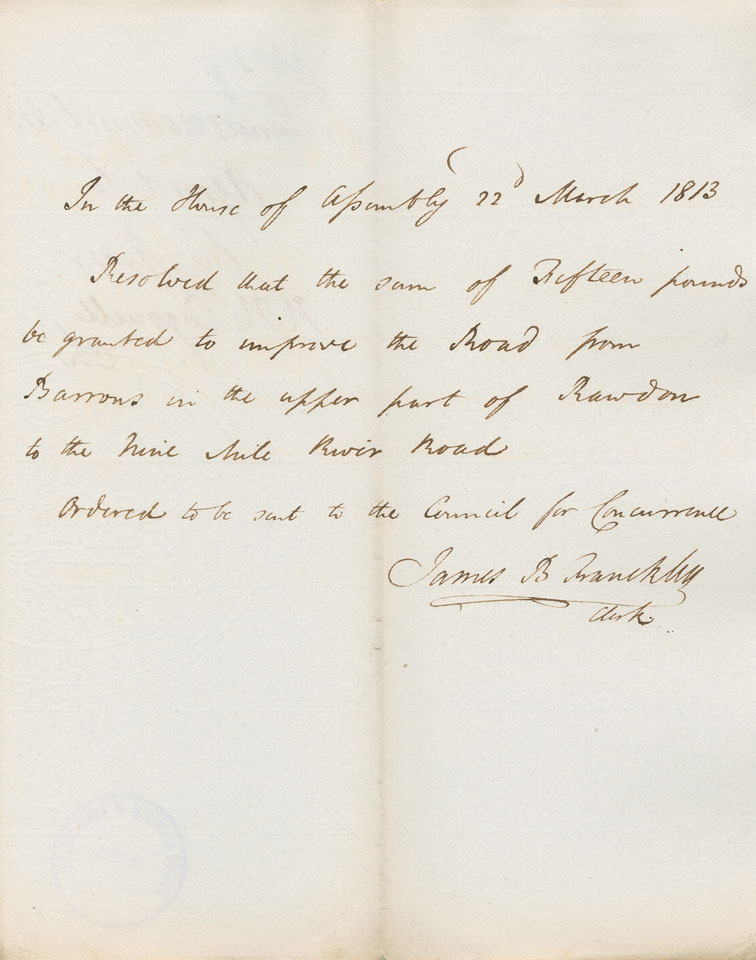 In the House of Assembly 22d March 1813
Resolved that the sum of Fifteen pounds
be granted to improve the Road from
Barrons in the upper part of Rawdon
to the Nine Mile River Road
Ordered to be sent to the Council for Concurrence
James B Franckley
Clerk